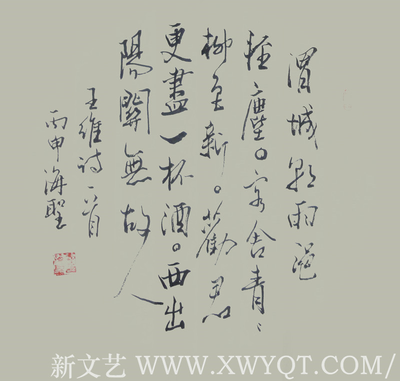 渭城朝雨浥
輕塵。客舍青〻
柳色新。勸君
更盡一杯酒。西出
陽關無故人
王維詩一首
丙申海聖
新文艺 WWW.XWYQT.COM/